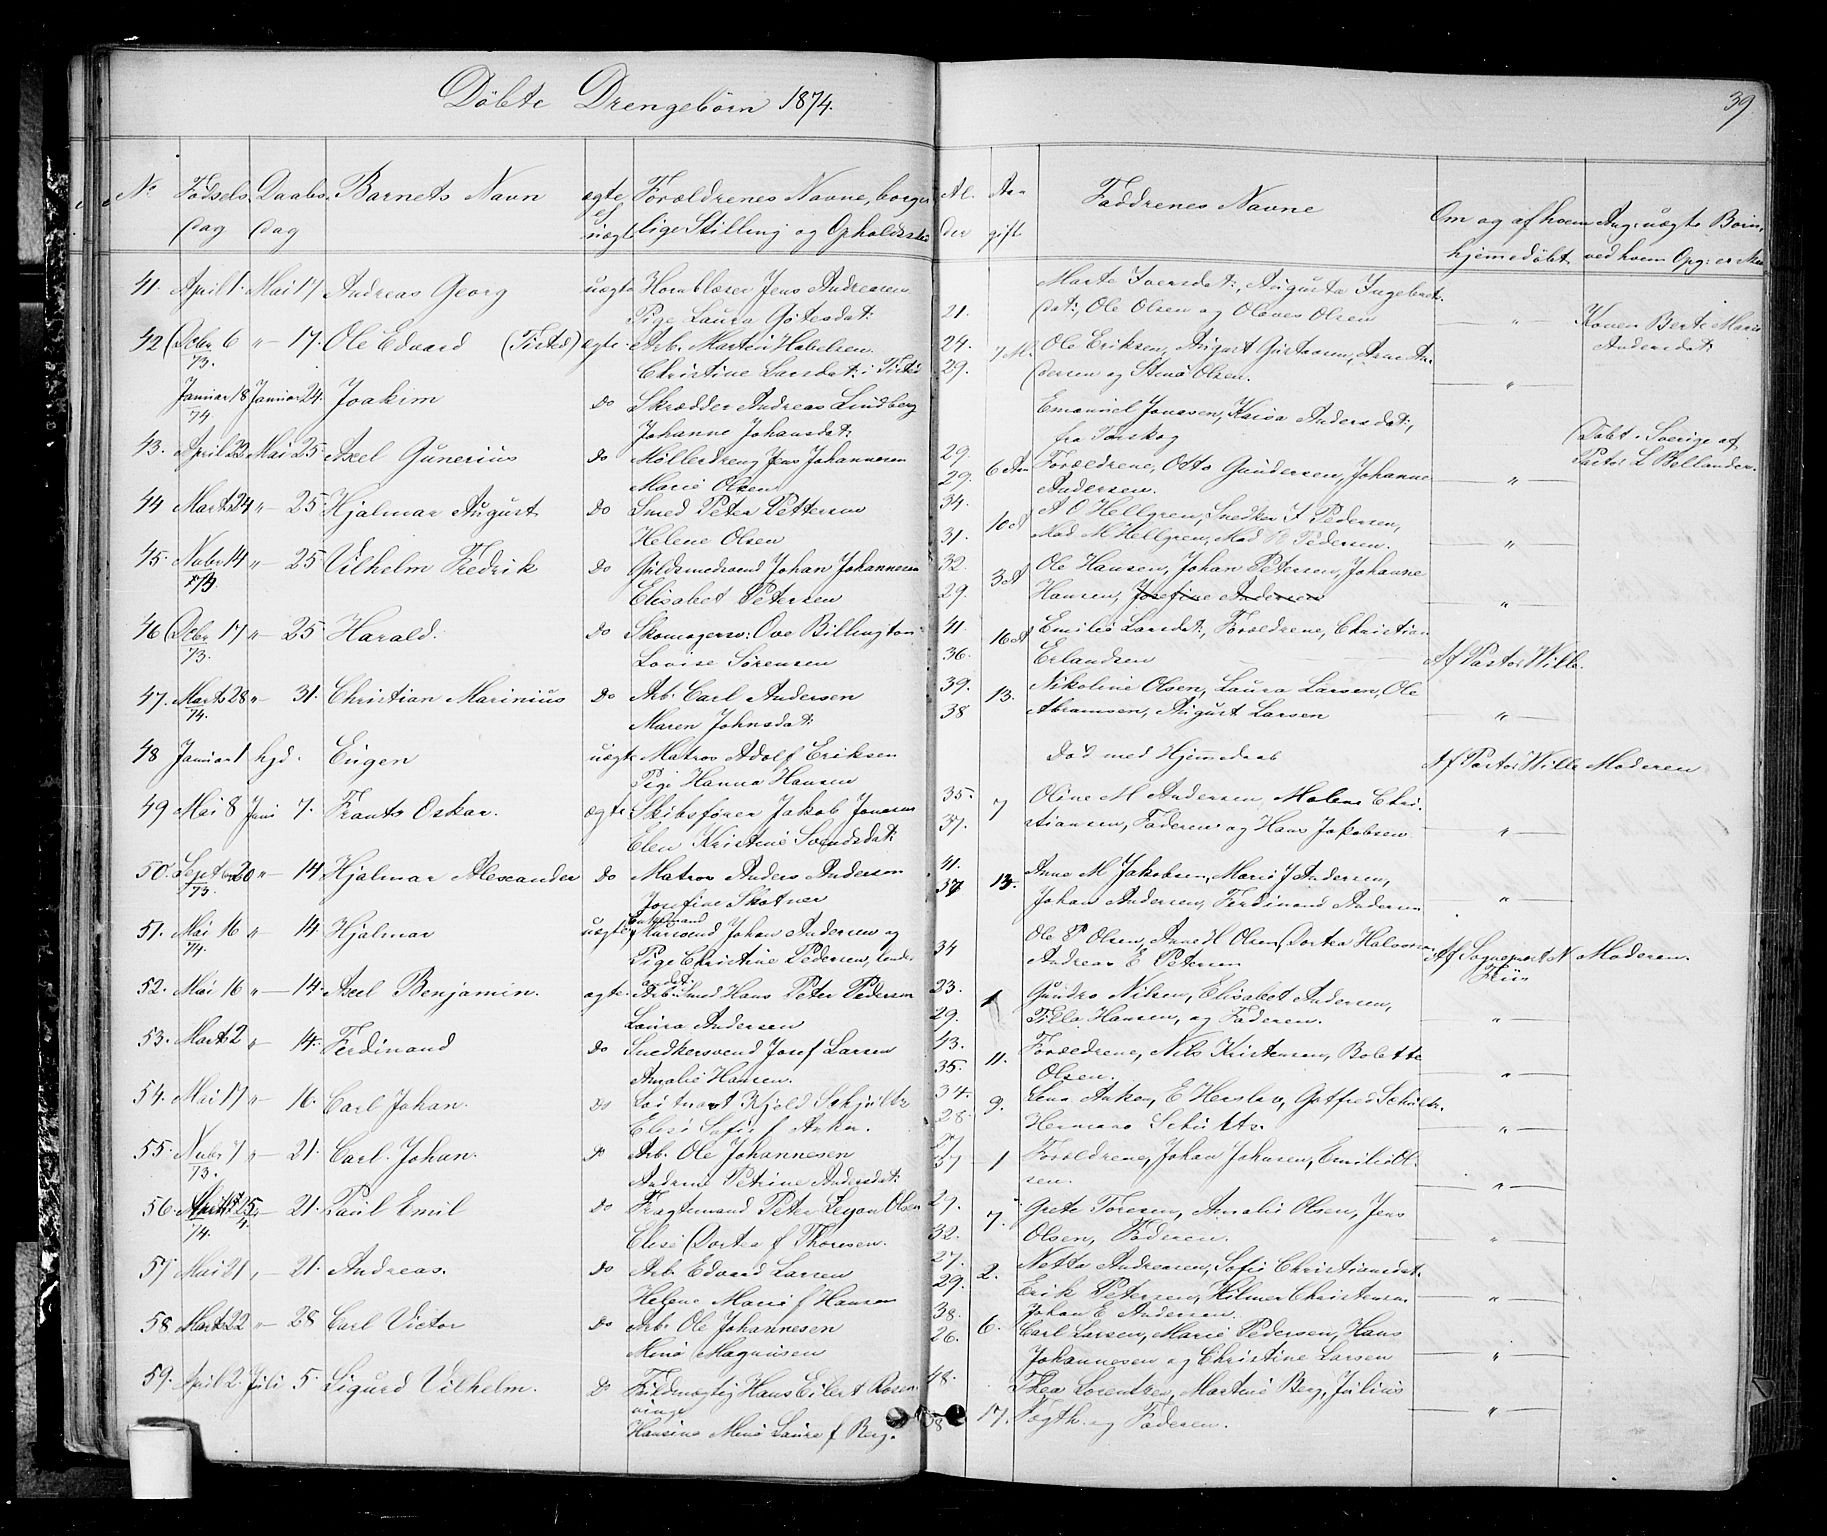 Döbte Drengebørn 1874.
39
No Fødsels Daabs Barnets Navn ægte Forældrenes Navne, borger
dag dag el uægte lige Stilling og Opholdssted
Al der Aar gift Faddrenes Navne Om og af hvem hjemedøbt Ang: uægte Børn, ved hvem Opg: er
41. April 1. Mai 17 Andreas Georg uægte Hornblæser Jens Andreasen
Pige Laura Götesdat:
42 Dcbr 6 " 17. Ole Edvard (Tisted) ægte. Arb. Martin Habelsen
73. Christine Larsdat: i Tisted
Januar 18 Januar 24. Joakim Do Skrædder Andreas Lindberg
74 Johanne Johansdat:
43. April 23 Mai 25 Axel Gunerius Do Møllerdreng Jens Johannesen
Marie Olsen
44 Marts 24 " 25 Hjalmar August Do Smed Peter Pettersen
Helene Olsen
45. Nvbr 14 " 25 Vilhelm Fredrik Do Guldsmedsvend Johan Johannesen
73 Elisabet Petersen
46 Dcbr 17 " 25 Harald. Do Skomagersv: Ove Billington
73. Lovise Sørensen
47. Marts 28 " 31. Christian Marinius Do Arb. Carl Andersen
74. Maren Johnsdat:
48 Januar 1 hjd. Eugen uægte Matros Adolf Eriksen
Pige Hanna Hansen
49 Mai 8 Juni 7. Frants Oskar. ægte Skibsfører Jakob Jonasen
Elen Kristine Svendsdat:
50. Septbr 20 " 14 Hjalmar Alexander Do Matros Anders Andersen
73. Josefine Skotner
51. Mai 16 " 14 Hjalmar uægte Enkemand Mursvend Johan Andersen og
74. Pige Christine Pedersen,
52. Mai 16 " 14. Axel Benjamin. ægte. Arb. smed Hans Peter Pedersen
Laura Andersen
53. Marts 2 " 14. Ferdinand Do Snedkersvend Josef Larsen
Amalie Hansen.
54. Mai 17 " 16. Carl Johan. Do
Elise Sofie f Anker.
55. Nvbr 7 " 21. Carl Johan. Do Arb. Ole Johannesen
73. Andrine Petrine Andersdat:
56. 25 " 21. Paul Emil Do Fragtemand Peter Olsen
74. 4. Elise Dortea f Thoresen.
57 Mai 21 " 21. Andreas. Do Arb. Edvard Larsen
Helene Marie f Hansen
58 Marts 22 " 28 Carl Victor Do Arb. Ole Johannesen
Mina Magnusen
59. April 2. Juli 5. Sigurd Vilhelm. Do Fuldmægtig Hans Eilert Rosen
vinge
Hansine Mine Laura f Berg.
Marte Iversdat:, Augusta Ingebret
21. dat: Ole Olsen og Olaves Olsen " Konen Berte Marie
24. 7 M. Ole Eriksen, August Gustavsen, Arne An Andersdat:
29. dersen og Stine Olsen. "
Emanuel Jonasen, Kaisa Andersdat:,
fra Torskog Døbt i Sverige af
29. 6 Aar Forældrene, Otto Gundersen, Johanne Pastor L Bellander.
29. Andersen. "
34. 10 A A O Hellgren, Snedker F Pedersen,
31. Mad M Hellgren, Mad Pedersen. "
32. 3 A Ole Hansen, Johan Petersen, Johanne
29. Hansen, Josefine Andersen "
41 16 A Emilie Larsdat:, Forældrene, Christian
36. Erlandsen Af Pastor Wille.
39. 13. Nikoline Olsen, Laura Larsen, Ole
38 Abramsen, August Larsen "
Død med Hjemedaab Af Pastor Wille Moderen
35. 7 Oline M Andersen, Malene Chri
37. stiansen, Faderen og Hans Jakobsen "
41. 13. Anne M Jakobsen, Marie J Andersen,
37 Johan Andersen, Ferdinand Andersen "
34 Ole P Olsen, Anne H Olsen, Dortea Halvorsen Af Sognepræst N Moderen.
Andreas E Petersen
23. 1 Gundro Nilsen, Elisabet Andersen,
29. Tilla Hansen, og Faderen. "
43. 11. Forældrene, Nils Kristensen, Bolette
35. Olsen. "
34. 9. Lena Anker, E Herslov, Gotfred Schultz.
28. Hermann Schultts. "
27 1 Forældrene, Johan Johnsen, Emilie Ol
37 sen. "
29. 7. Grete Toresen, Amalie Olsen, Jens
32. Olsen, Faderen. "
27. 2. Netta Andreasen, Sofie Christiansdat:
29. Erik Petersen, Hilmer Christensen "
38. 6. Johan E Andersen.
26. Carl Larsen, Marie Pedersen, Hans
Johannesen og Christine Larsen "
48. 17. Thea Lorentzen, Martine Berg, Julius
38 Vogth og Faderen. "